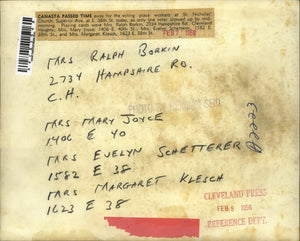 CANASTA PASSED TIME away for the voting place workers at St. Nicholas
Church, Superior Ave. at E. 36th St. today, as only one voter showed up by mid-
morning. Playing cards were Mrs. Ralph Borkin, 2734 Hampshire Rd., Cleveland
Heights; Mrs. Mary Joyce, 1406 E. 40th St.; Mrs. Evelyn Schetterer, 1582 E.
38th St., and Mrs. Margaret Klesch, 1623 E. 38th St.
FEB 7 1956
MRS RALPH BORKIN
2734 HAMPSHIRE RD.
C.H.
PHOTO BY
MRS MARY JOYCE
1406 E 40
MRS EVELYN SCHETTERER
1582 E 38
MRS MARGARET KLESCH
1623 E 38
CLEVELAND PRESS
FEB 8 1956
REFERENCE DEPT.